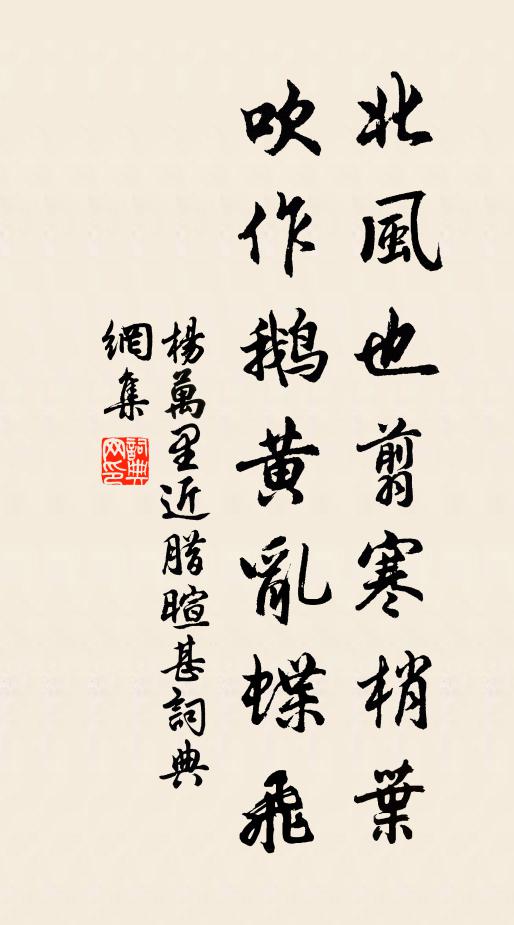 北風也翦寒梢葉
吹作鵝黃亂蝶飛
楊萬里近腊暄甚詞典
網集
詞典
网印